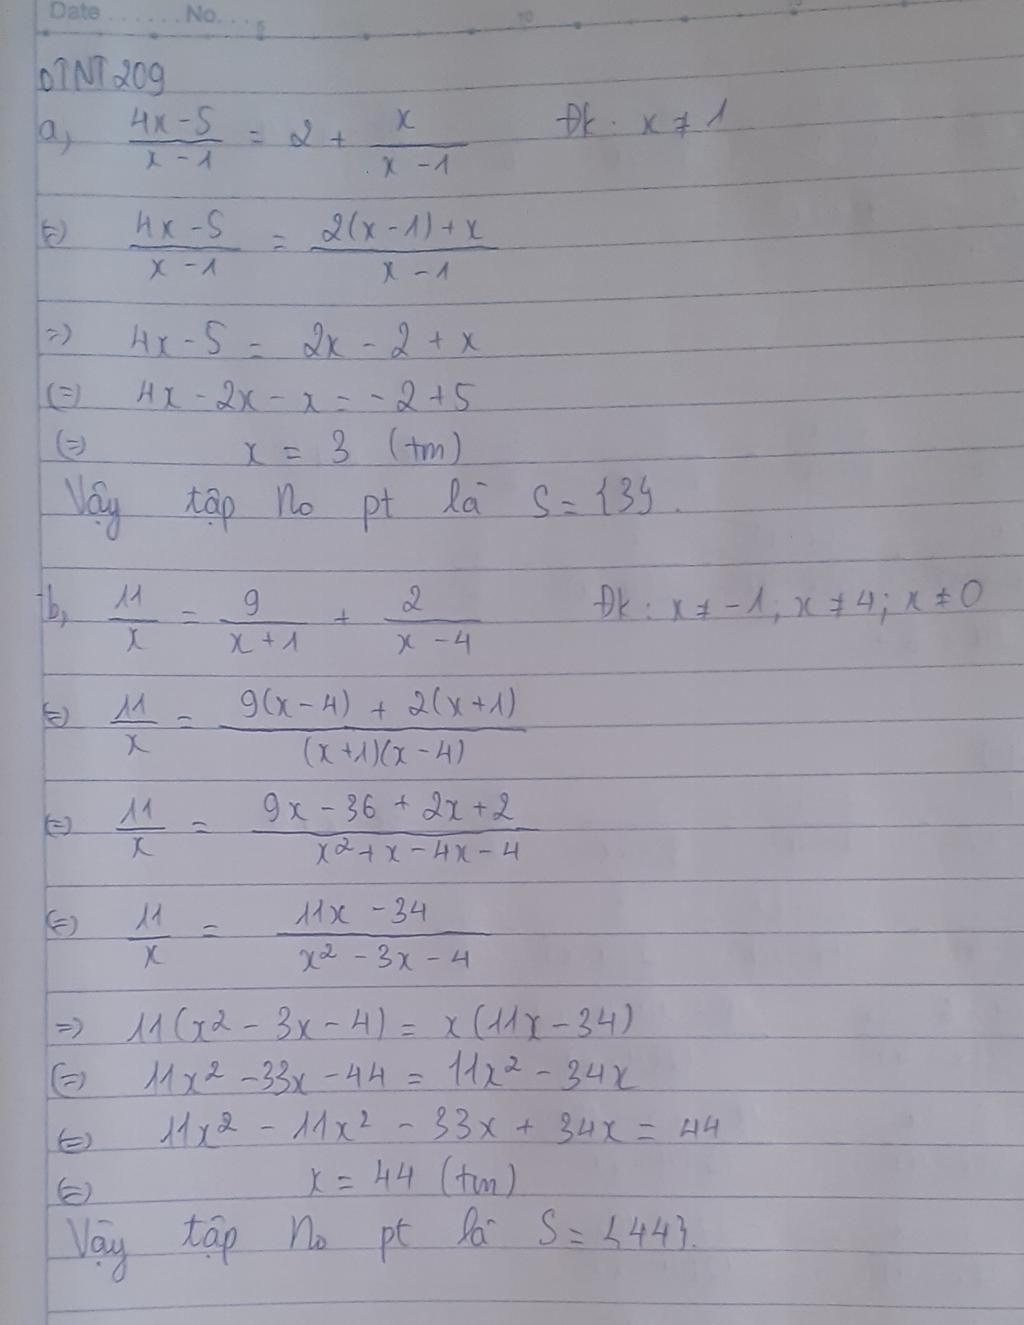 Date.......No....
ĐTNT 209
a, (4x-5)/(x-1) = 2 + x/(x-1) Đk: x ≠ 1
(=) (4x-5)/(x-1) = (2(x-1)+x)/(x-1)
=) 4x-5 = 2x-2+x
(=) 4x-2x-x = -2+5
(=) x = 3 (tm)
Vậy tập no pt là S={3}.
b, 11/x = 9/(x+1) + 2/(x-4) Đk: x ≠ -1; x ≠ 4; x ≠ 0
(=) 11/x = (9(x-4) + 2(x+1))/((x+1)(x-4))
(=) 11/x = (9x-36+2x+2)/(x²+x-4x-4)
(=) 11/x = (11x-34)/(x²-3x-4)
=) 11(x²-3x-4) = x(11x-34)
(=) 11x²-33x-44 = 11x²-34x
(=) 11x²-11x²-33x+34x = 44
(=) x = 44 (tm)
Vậy tập no pt là S={44}.